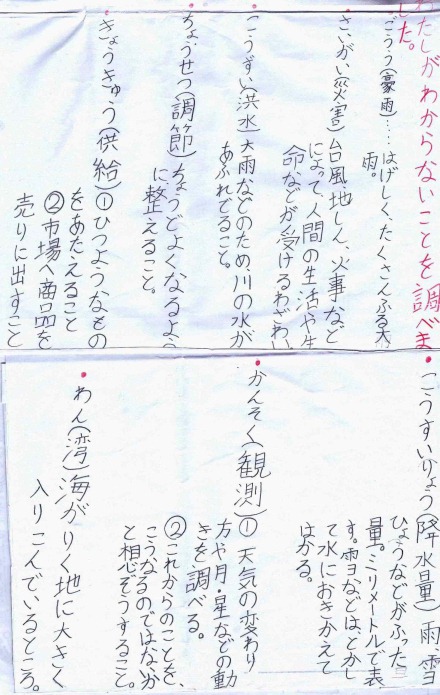 わたしがわからないことを調べま
した。
・ごうう(豪雨)……はげしく、たくさんふる大
雨。
・さいがい(災害)台風、地しん、火事など
によって、人間の生活や生
命などが受けるわざわい
・こうずい(洪水)大雨などのため、川の水が
あふれでること。
・ちょうせつ(調節)ちょうどよくなるよう
に整えること。
・きょうきゅう(供給)①ひつようなもの
をあたえること
②市場へ商品を
売りに出すこと
・こうすいりょう(降水量)雨、雪
ひょうなどがふった
量。ミリメートルで表
す。雪などはとかし
て水におきかえて
はかる。
・かんそく(観測)①天気の変わり
方や月・星などの動
きを調べる。
②これからのことを、
こうなるのではないか
と想ぞうすること。
・わん(湾)海がりく地に大きく
入りこんでいるところ。